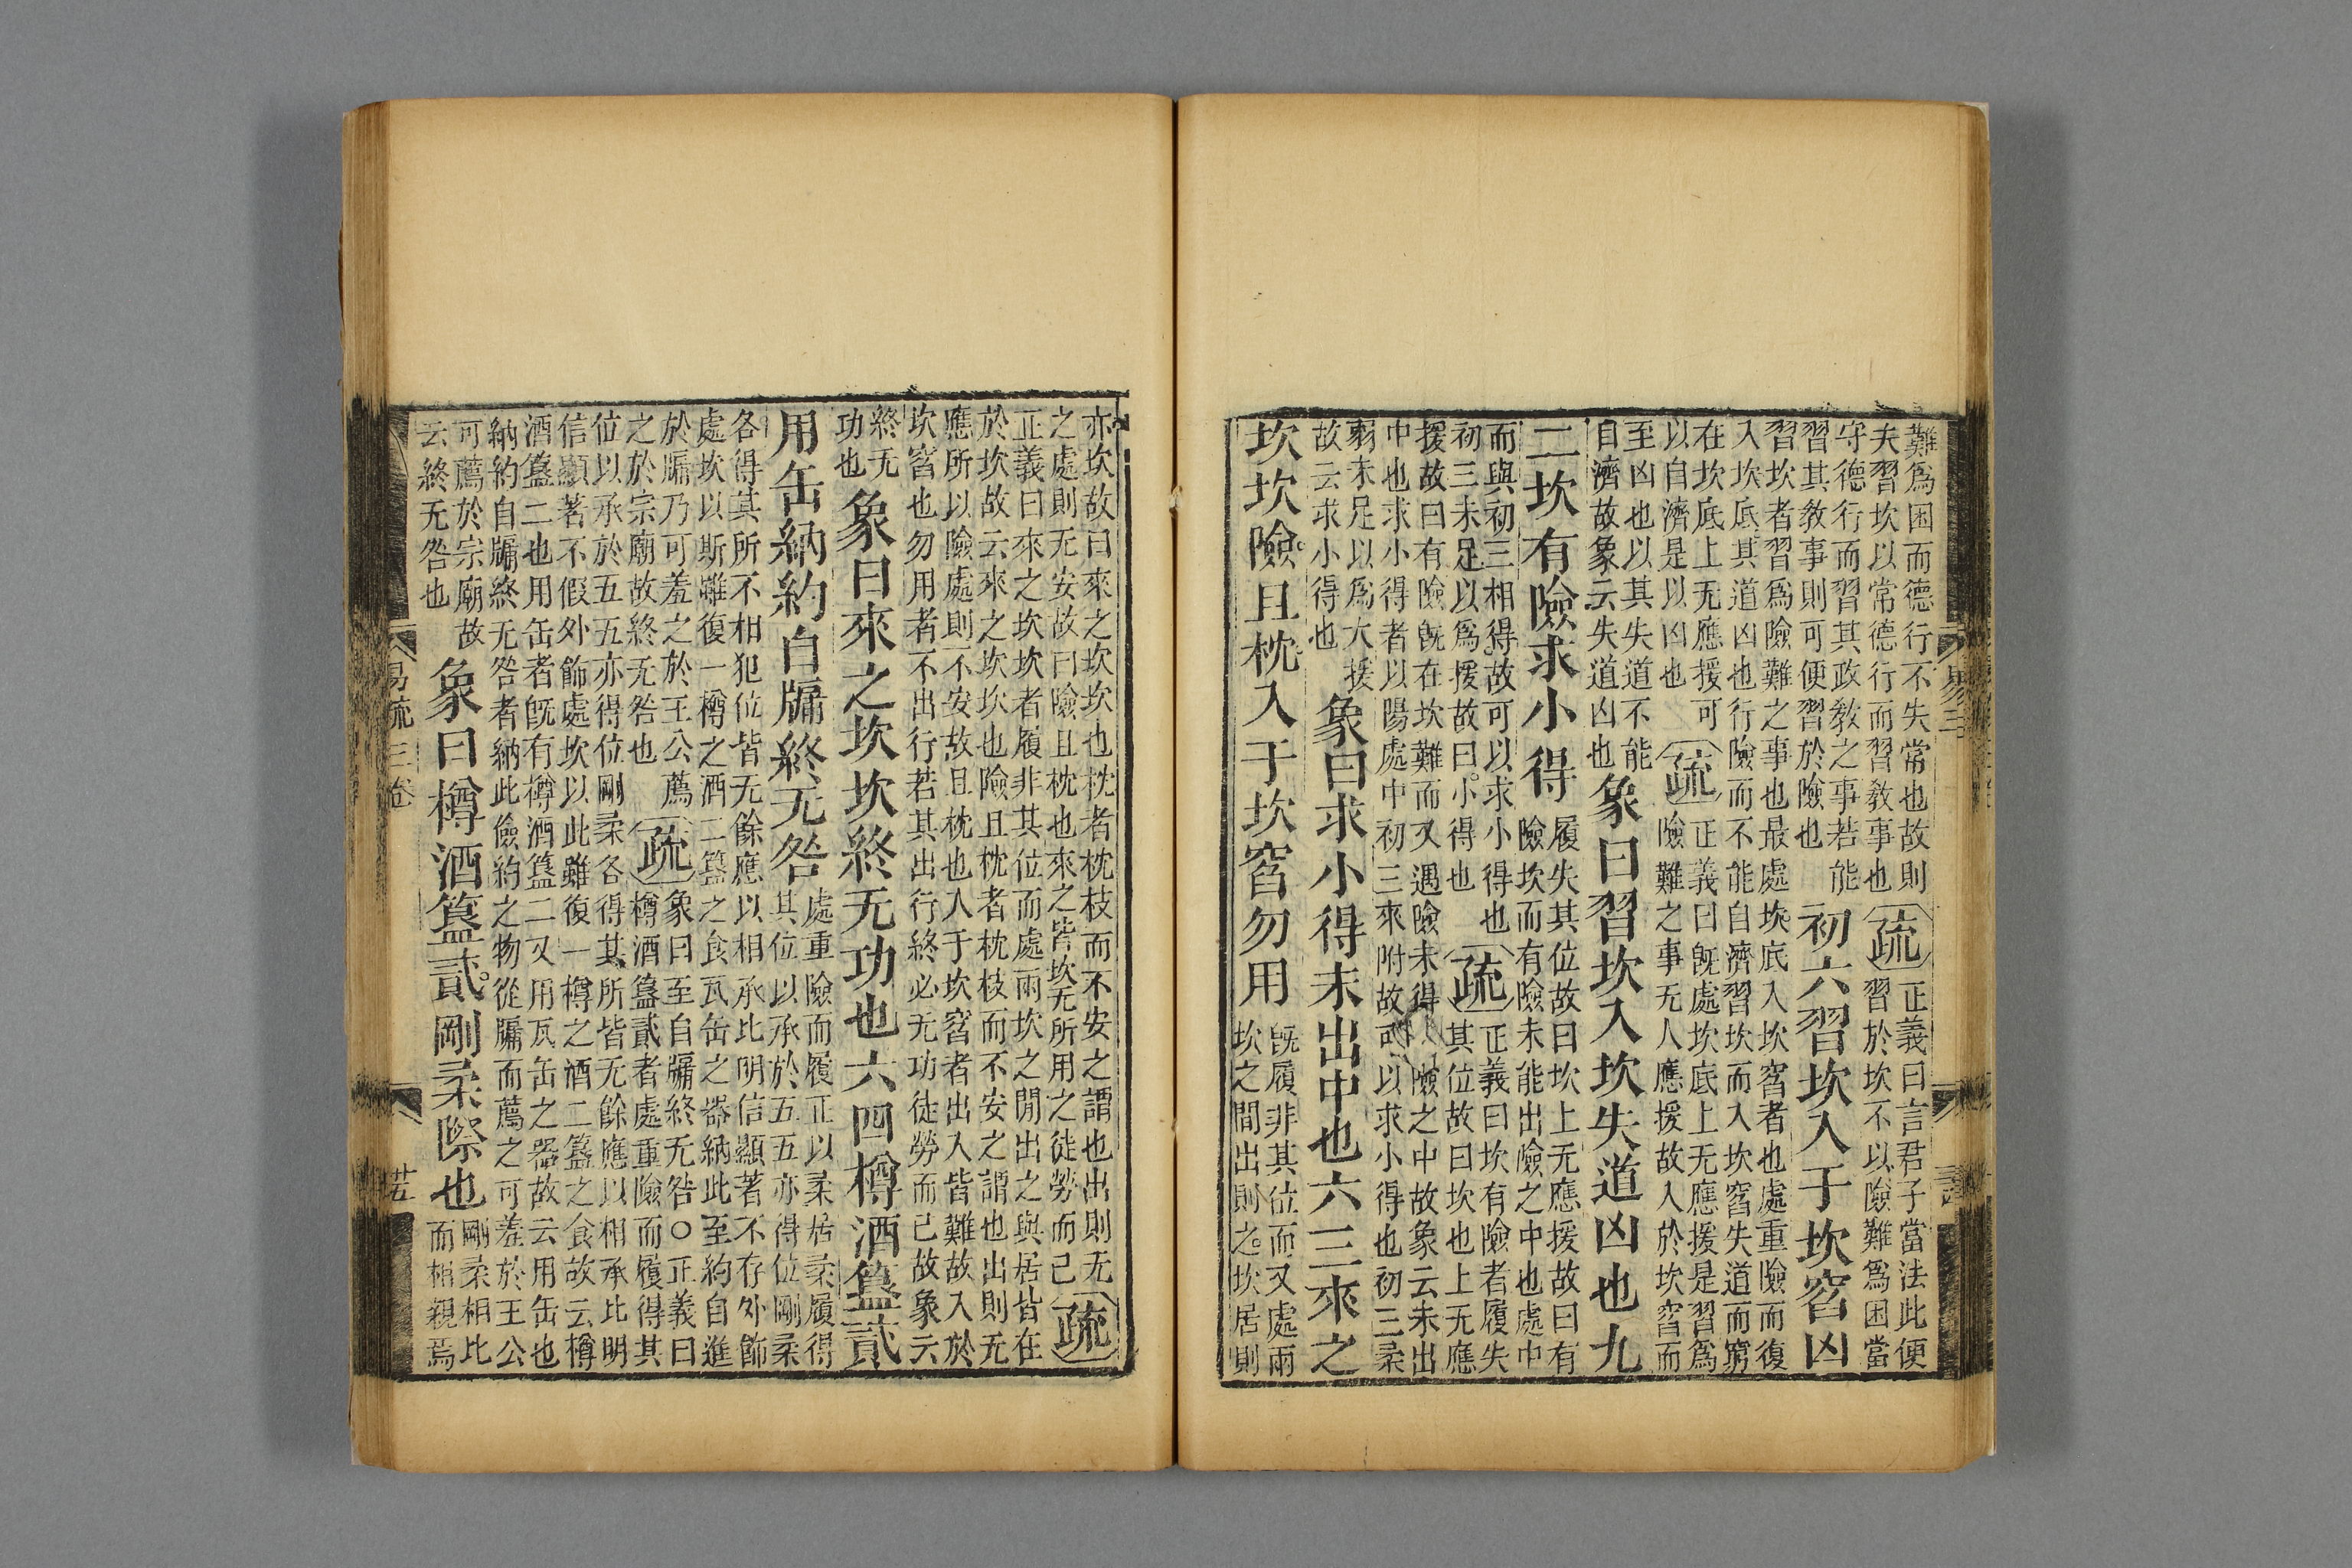 難爲困而德行不失常也故則
夫習坎以常德行而習教事也
疏
正義曰言君子當法此便
習於坎不以險難爲困當
守德行而習其政教之事若能
習其教事則可便習於險也
初六習坎入于坎窞凶
習坎者習爲險難之事也最處坎底入坎窞者也處重險而復
入坎底其道凶也行險而不能自濟習坎而入坎窞失道而窮
在坎底上无應援可
以自濟是以凶也
疏
正義曰旣處坎底上无應援是習爲
險難之事无人應援故入於坎窞而
至凶也以其失道不能
自濟故象云失道凶也
象曰習坎入坎失道凶也九
二坎有險求小得
履失其位故曰坎上无應援故曰有
險坎而有險未能出險之中也處中
而與初三相得故可以求小得也
初三未足以爲援故曰小得也
疏
正義曰坎有險者履失
其位故曰坎也上无應
援故曰有險旣在坎難而又遇險未得險之中故象云未出
中也求小得者以陽處中初三來附故可以求小得也初三柔
弱未足以爲大援
故云求小得也
象曰求小得未出中也六三來之
坎坎險且枕入于坎窞勿用
旣履非其位而又處兩
坎之間出則之坎居則
亦坎故曰來之坎坎也枕者枕枝而不安之謂也出則无
之處則无安故曰險且枕也來之皆坎无所用之徒勞而已
疏
正義曰來之坎坎者履非其位而處兩坎之閒出之與居皆在
於坎故云來之坎坎也險且枕者枕枝而不安之謂也出則无
應所以險處則不安故且枕也入于坎窞者出入皆難故入於
坎窞也勿用者不出行若其出行終必无功徒勞而已故象云
終无
功也
象曰來之坎坎終无功也六四樽酒簋貳
用缶納約自牖終无咎
處重險而履正以柔居柔履得
其位以承於五五亦得位剛柔
各得其所不相犯位皆无餘應以相承比明信顯著不存外飾
處坎以斯雖復一樽之酒二簋之食瓦缶之器納此至約自進
於牖乃可羞之於王公薦
之於宗廟故終无咎也
疏
象曰至自牖終无咎○正義曰
樽酒簋貳者處重險而履得其
位以承於五五亦得位剛柔各得其所皆无餘應以相承比明
信顯著不假外飾處坎以此雖復一樽之酒二簋之食故云樽
酒簋二也用缶者旣有樽酒簋二又用瓦缶之器故云用缶也
納約自牖終无咎者納此儉約之物從牖而薦之可羞於王公
可薦於宗廟故
云終无咎也
象曰樽酒簋貳剛柔際也
剛柔相比
而相親焉
易疏三卷